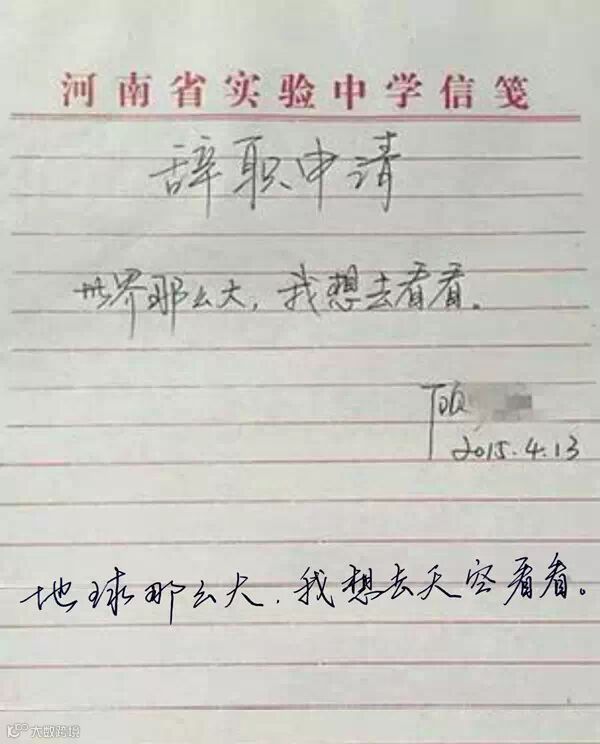 河南省实验中学信笺
辞职申请
世界那么大，我想去看看。
2015.4.13
地球那么大，我想去天空看看。
大数跨境